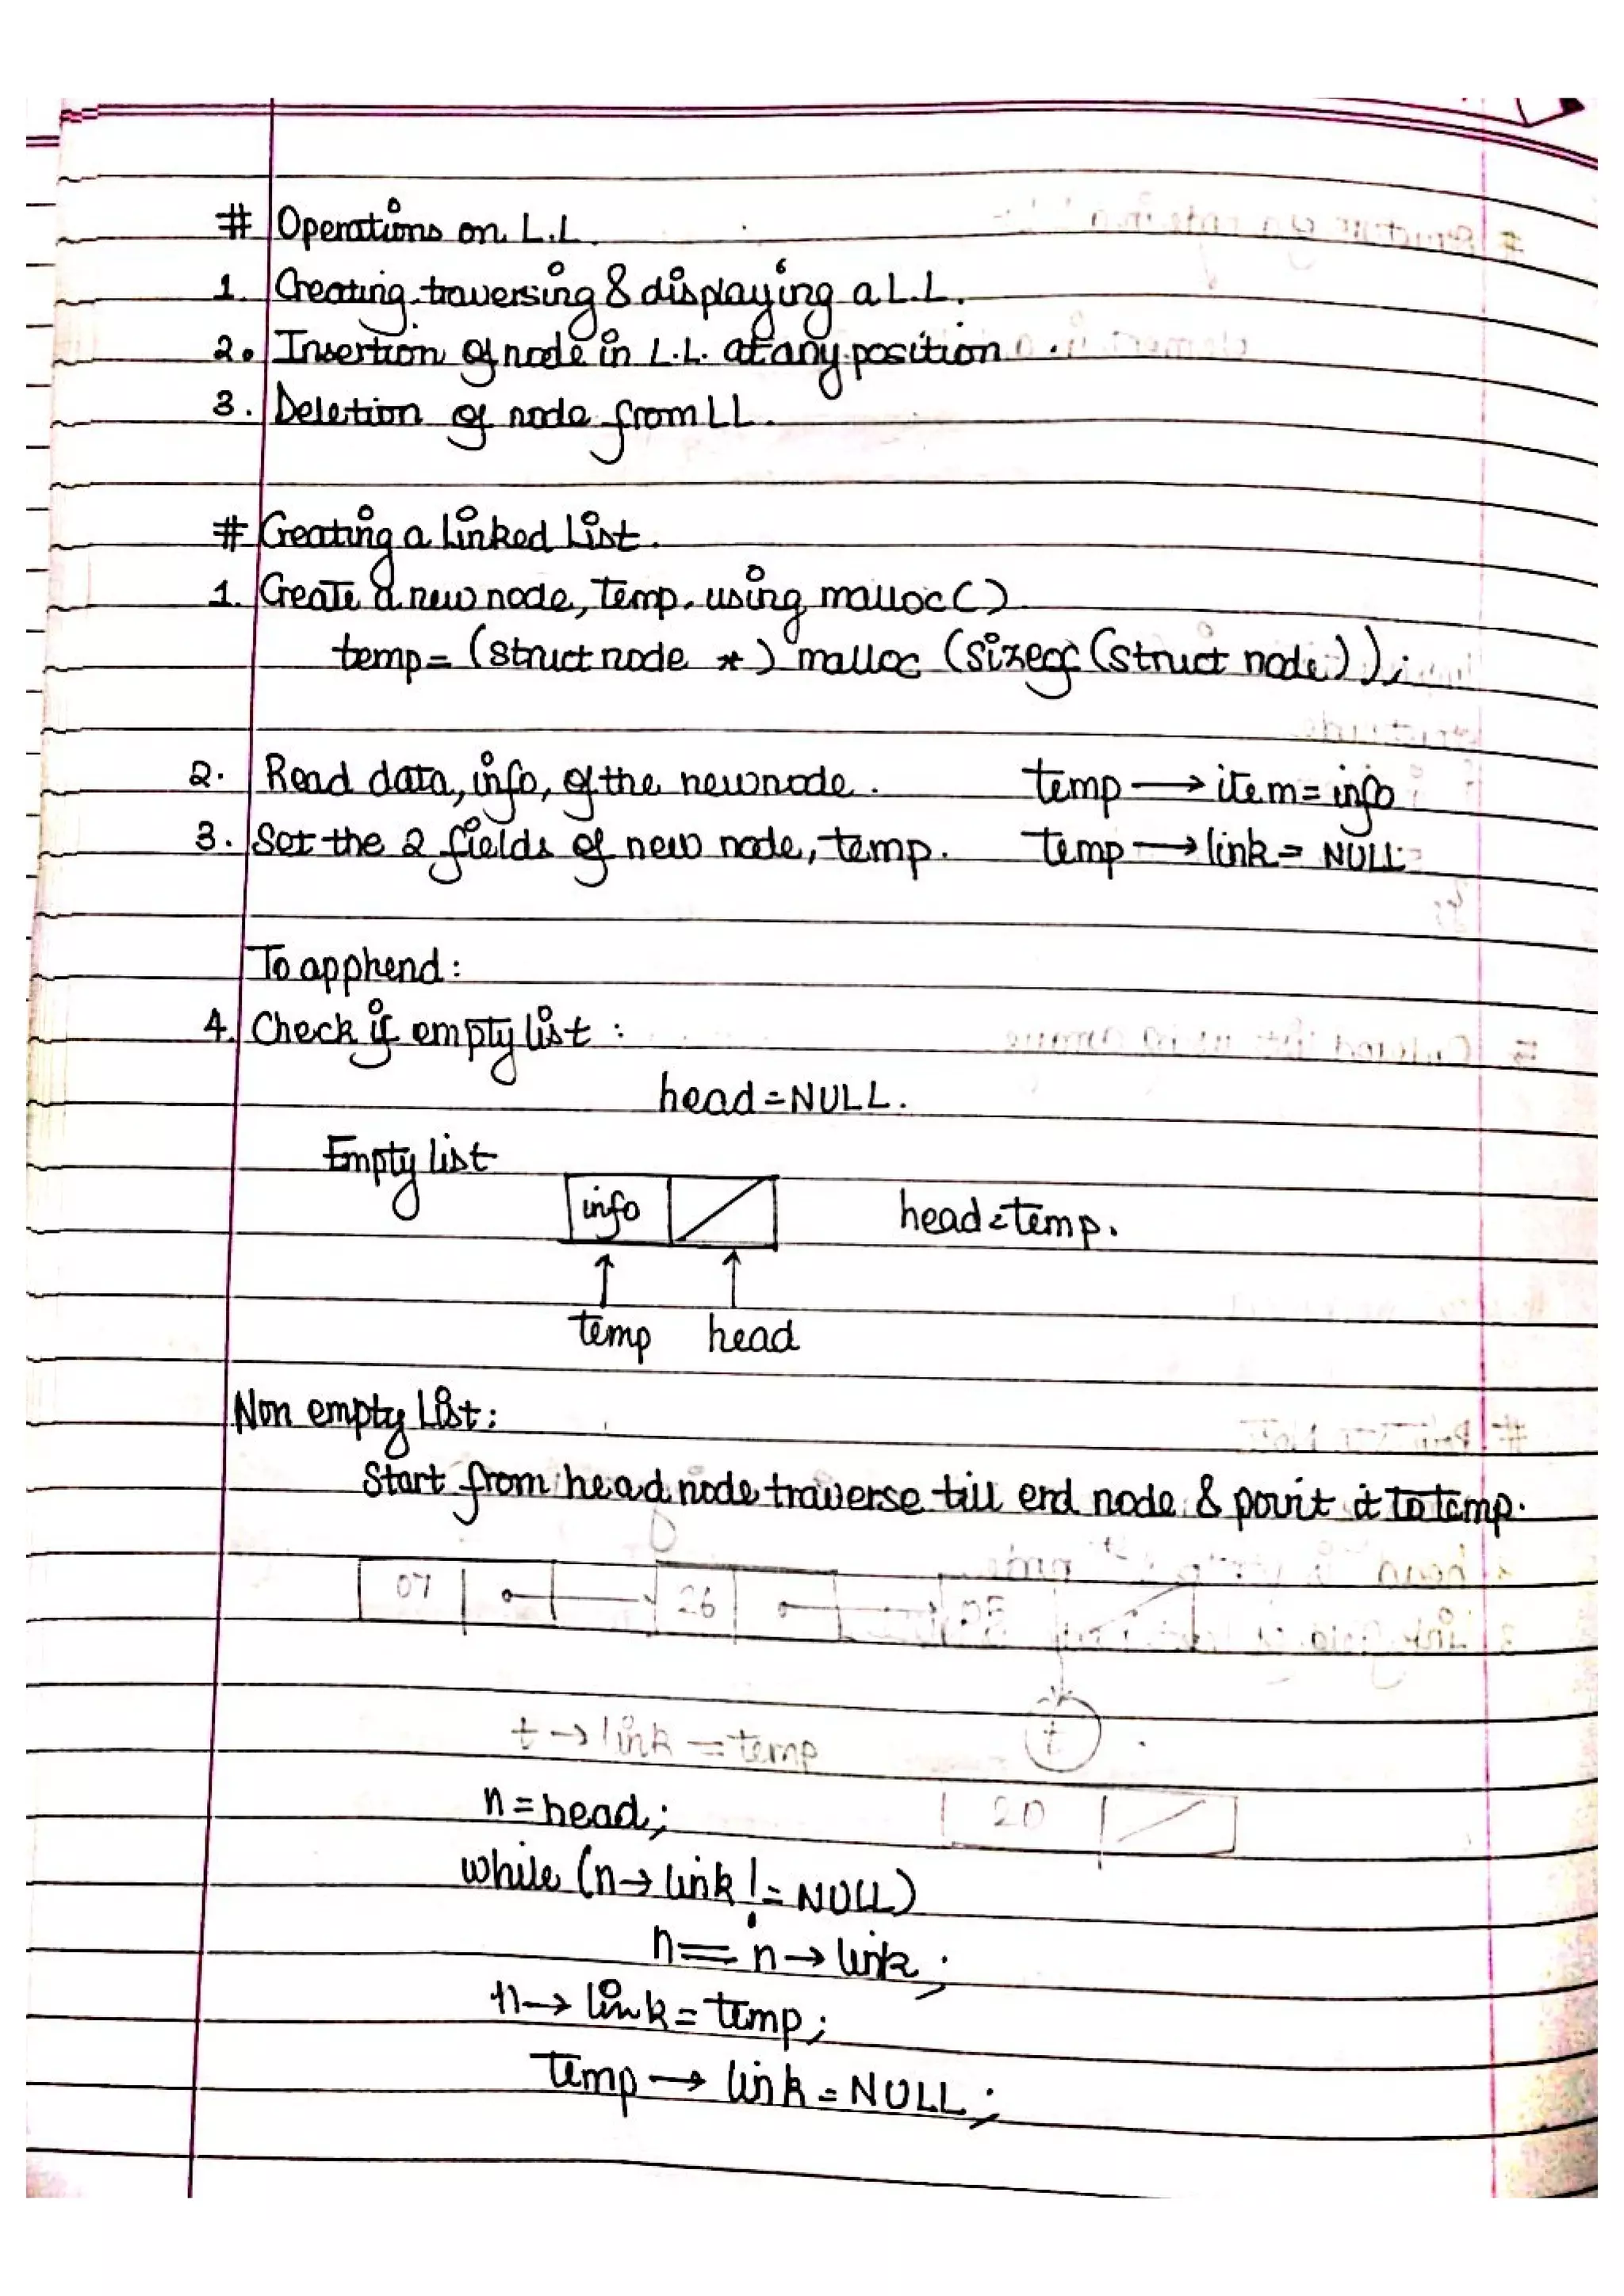 # Operations on L.L.
1. Creating, traversing & displaying a L.L.
2. Insertion of node in L.L. at any position
3. Deletion of node from LL.
# Creating a Linked List.
1. Create a new node, temp, using malloc()
temp = (struct node *) malloc (sizeof (struct node));
2. Read data, info, of the newnode. temp → item = info
3. Set the 2 fields of new node, temp. temp → link = NULL
To apphend:
4. Check if empty list :
head = NULL.
Empty list
info head = temp.
temp head
Non empty List:
Start from head node traverse till end node & point it to temp.
07 26
t → link = temp t
n = head; 20
while (n → link != NULL)
n = n → link;
n → link = temp;
temp → link = NULL;